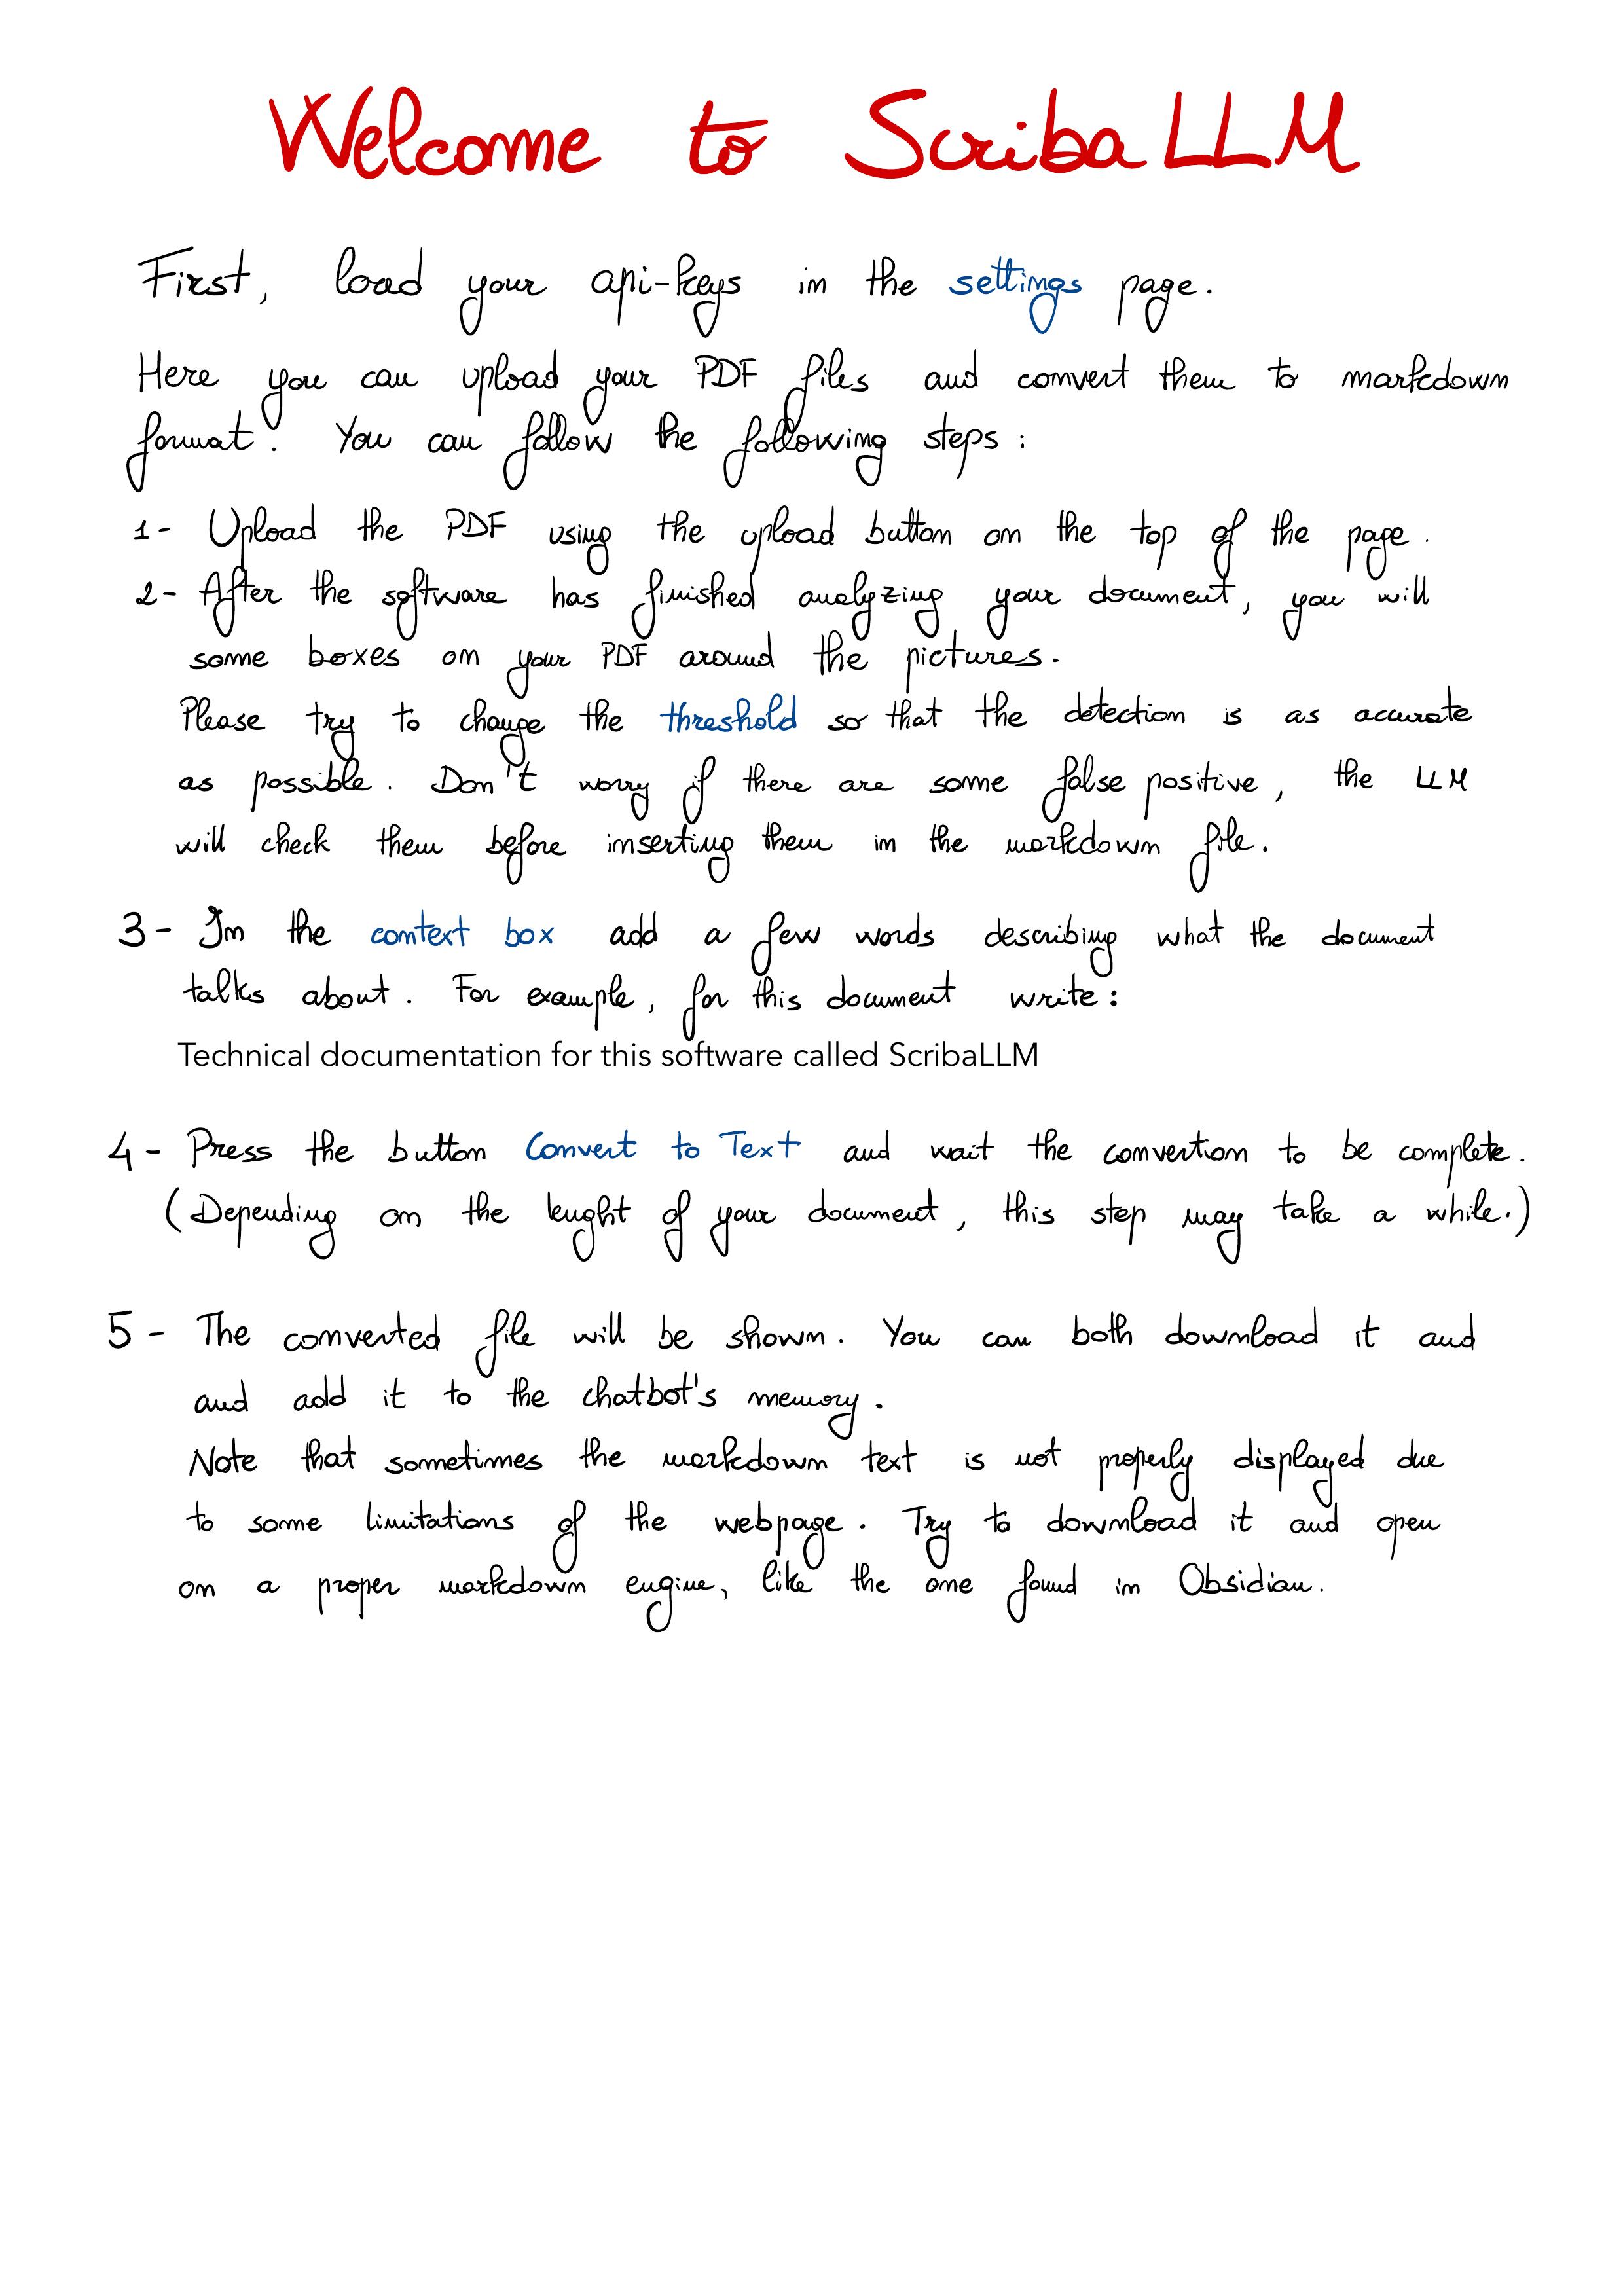 Welcome to ScribaLLM
First, load your api-keys in the settings page.
Here you can upload your PDF files and convert them to markdown
format. You can follow the following steps:
1- Upload the PDF using the upload button on the top of the page.
2- After the software has finished analyzing your document, you will
some boxes on your PDF around the pictures.
Please try to change the threshold so that the detection is as accurate
as possible. Don't worry if there are some false positive, the LLM
will check them before inserting them in the markdown file.
3- In the context box add a few words describing what the document
talks about. For example, for this document write:
Technical documentation for this software called ScribaLLM
4- Press the button Convert to Text and wait the convertion to be complete.
(Depending on the lenght of your document, this step may take a while.)
5- The converted file will be shown. You can both download it and
and add it to the chatbot's memory.
Note that sometimes the markdown text is not properly displayed due
to some limitations of the webpage. Try to download it and open
on a proper markdown engine, like the one found in Obsidian.